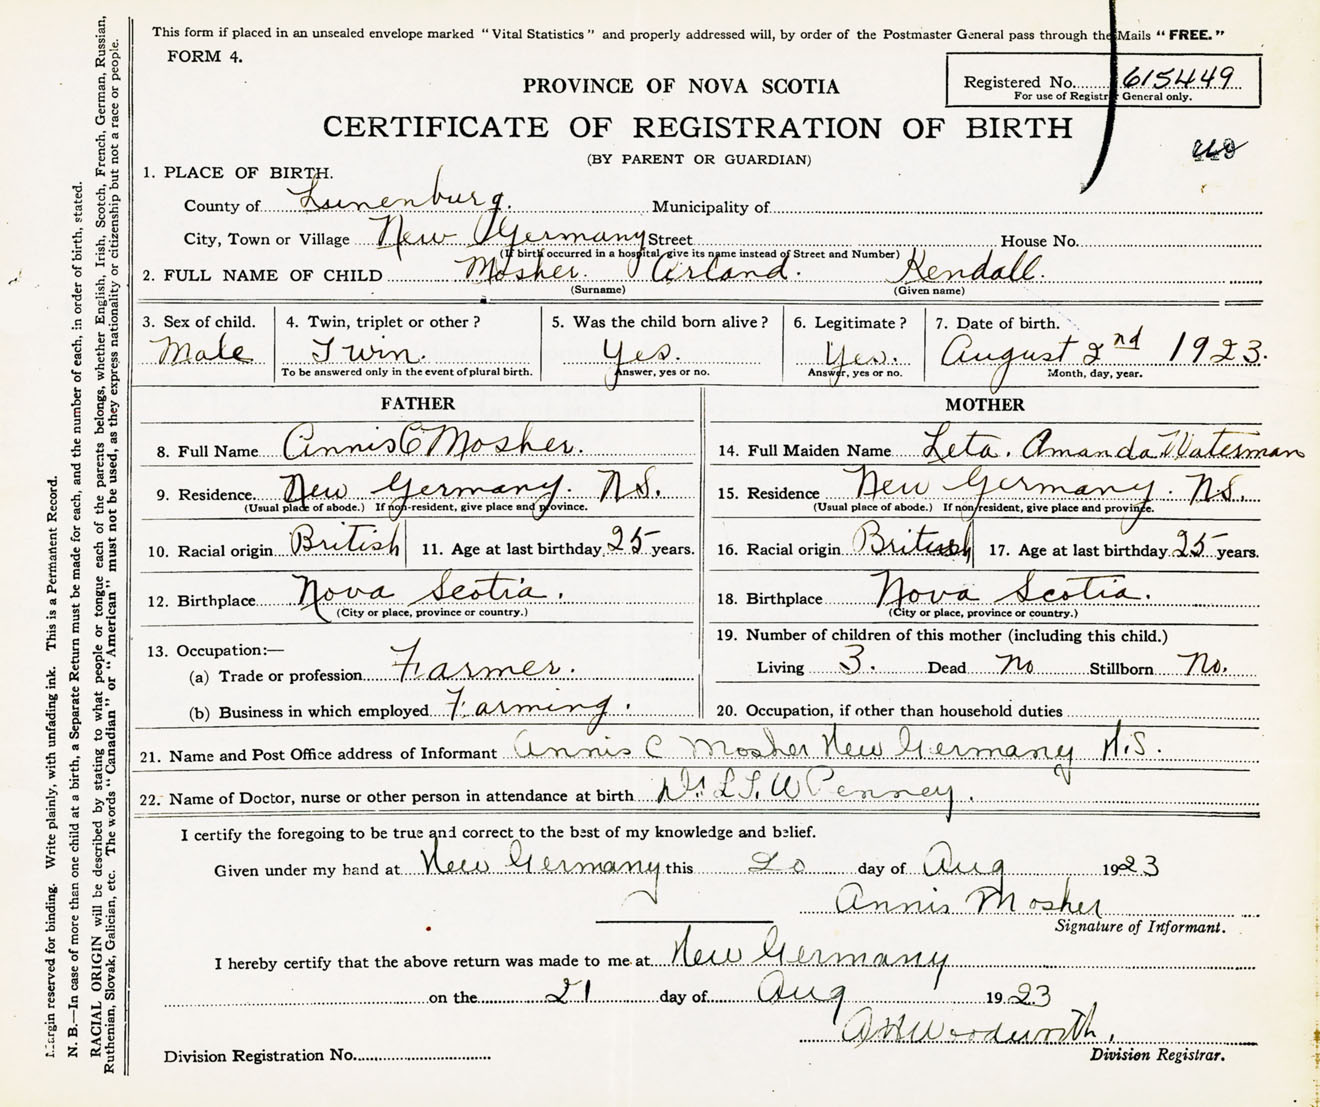 This form if placed in an unsealed envelope marked "Vital Statistics" and properly addressed will, by order of the Postmaster General pass through the Mails "FREE."
FORM 4.
Registered No. 615449
For use of Registrar General only.
PROVINCE OF NOVA SCOTIA
CERTIFICATE OF REGISTRATION OF BIRTH
(BY PARENT OR GUARDIAN)
1. PLACE OF BIRTH.
County of Lunenburg. Municipality of
City, Town or Village New Germany Street House No.
(If birth occurred in a hospital, give its name instead of Street and Number)
2. FULL NAME OF CHILD Mosher. Arland. Kendall.
(Surname) (Given name)
3. Sex of child. 4. Twin, triplet or other? 5. Was the child born alive? 6. Legitimate? 7. Date of birth.
Male Twin. Yes. Yes. August 2nd 1923.
To be answered only in the event of plural birth. Answer, yes or no. Answer, yes or no. Month, day, year.
FATHER MOTHER
8. Full Name Annis C Mosher. 14. Full Maiden Name Leta. Amanda Waterman
9. Residence. New Germany. N.S. 15. Residence New Germany. N.S.
(Usual place of abode.) If non-resident, give place and province. (Usual place of abode.) If non resident, give place and province.
10. Racial origin British 11. Age at last birthday 25 years. 16. Racial origin British 17. Age at last birthday 25 years.
12. Birthplace Nova Scotia. 18. Birthplace Nova Scotia.
(City or place, province or country.) (City or place, province or country.)
19. Number of children of this mother (including this child.)
13. Occupation:—
(a) Trade or profession Farmer. Living 3. Dead no Stillborn No.
(b) Business in which employed Farming. 20. Occupation, if other than household duties
21. Name and Post Office address of Informant Annis C Mosher New Germany N.S.
22. Name of Doctor, nurse or other person in attendance at birth Dr. L.S.W Penney.
I certify the foregoing to be true and correct to the best of my knowledge and belief.
Given under my hand at New Germany this 20 day of Aug 1923
Annis Mosher
Signature of Informant.
I hereby certify that the above return was made to me at New Germany
on the 21 day of Aug 1923
A H Woodworth.
Division Registration No. Division Registrar.
Margin reserved for binding. Write plainly, with unfading ink. This is a Permanent Record.
N. B.—In case of more than one child at a birth, a Separate Return must be made for each, and the number of each, in order of birth, stated.
RACIAL ORIGIN will be described by stating to what people or tongue each of the parents belongs, whether English, Irish, Scotch, French, German, Russian,
Ruthenian, Slovak, Galician, etc. The words "Canadian" or "American" must not be used, as they express nationality or citizenship but not a race or people.